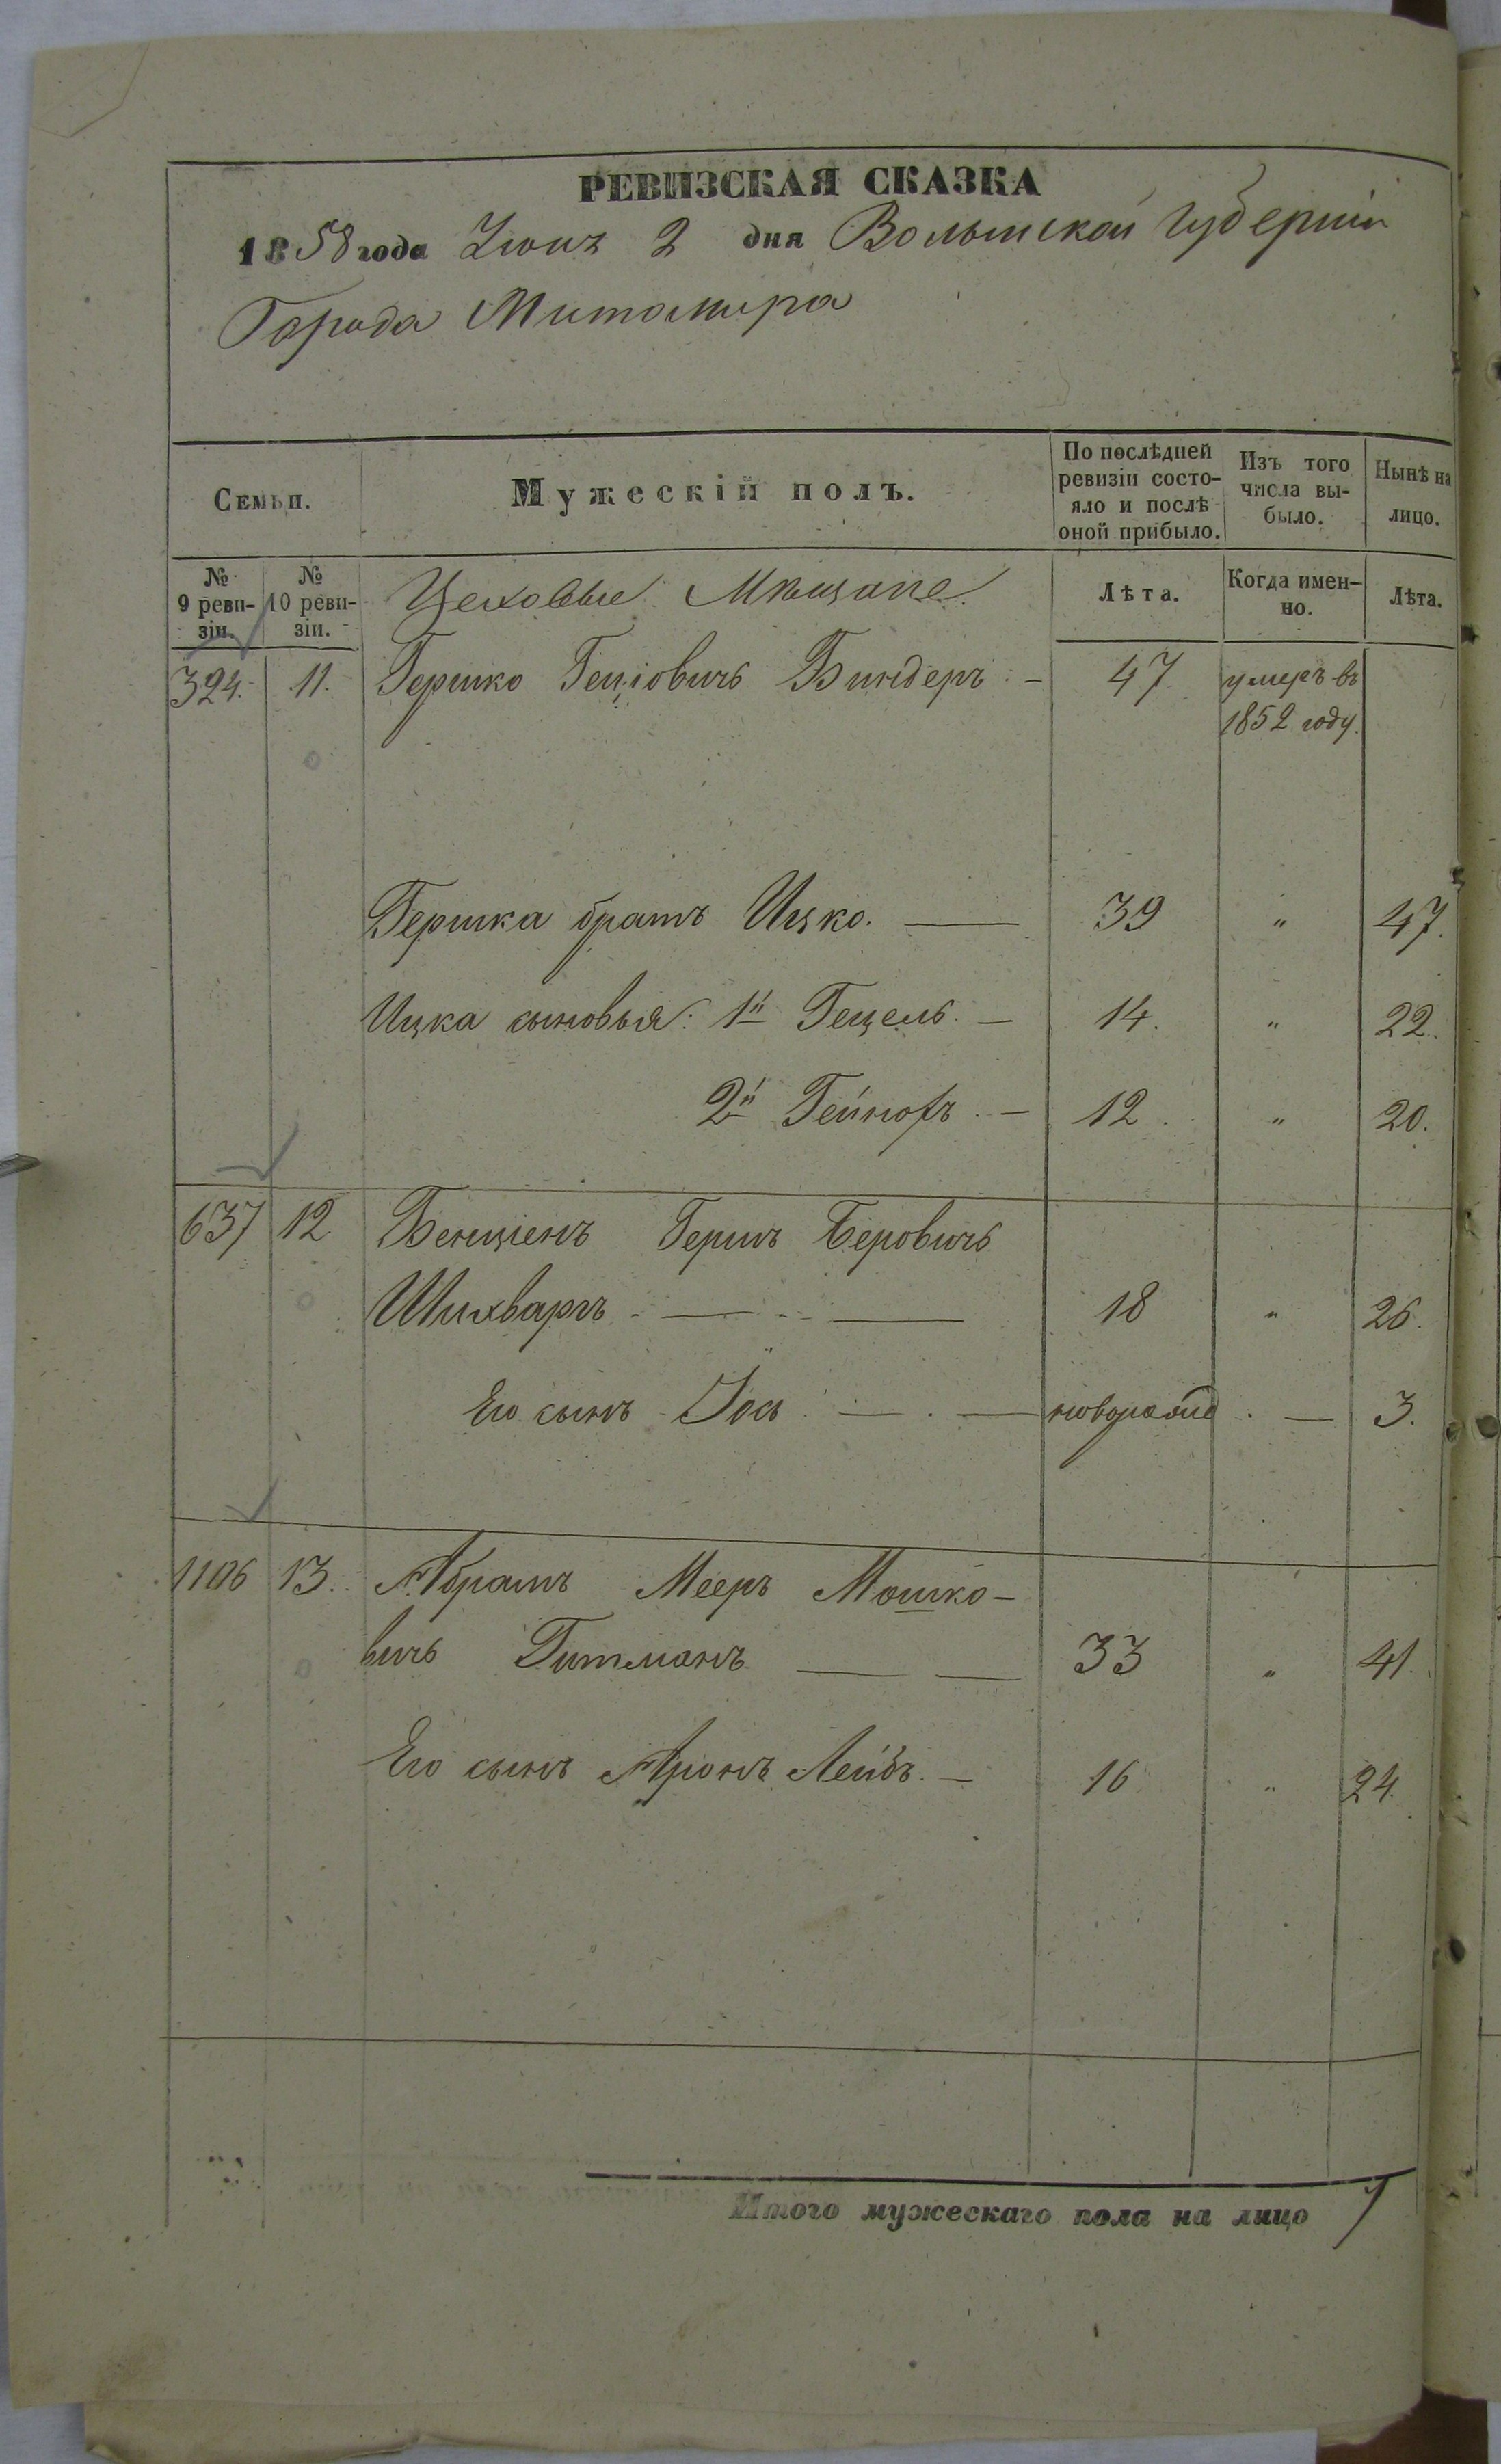 РЕВИЗСКАЯ СКАЗКА
1858 года Іюня 2 дня Волынской губерніи
Города Житомира
Семьи.
Мужескій полъ.
По послѣдней ревизіи состо-яло и послѣ оной прибыло.
Изъ того числа вы-было.
Нынѣ на лицо.
№ 9 реви-зіи.
№ 10 реви-зіи.
Цеховые Мѣщане.
Лѣта.
Когда имен-но.
Лѣта.
324. 11. Гершко Геціовичь Биндеръ - 47 умеръ въ
1852 году.
Гершка братъ Ицко. — 39 " 47.
Ицка сыновья: 1й Гецель. — 14. " 22.
2й — 12. " 20.
637 12 Бенціенъ Гершъ Беровичь
Шихваргъ — — 18 " 26.
Его сынъ Іось — — 3.
1106 13. Абрамъ Мееръ Мошко-
вичь Гитманъ — — 33 " 41.
Его сынъ Аронъ Лейбъ. — 16 " 24.
Итого мужескаго пола на лицо 7